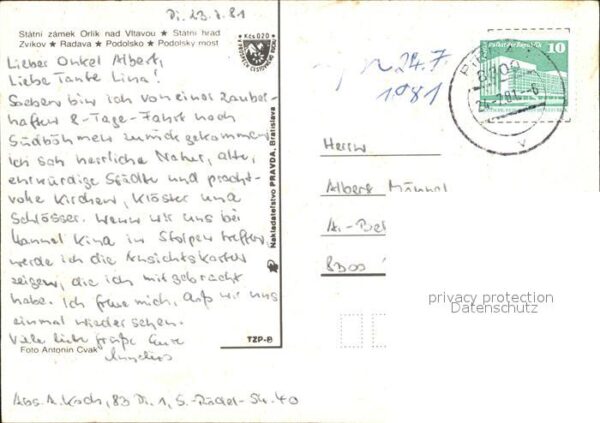 Di. 23.7.81
Státní zámek Orlík nad Vltavou ★ Státní hrad
Zvíkov ★ Radava ★ Podolsko ★ Podolský most
Kčs 0,20
Lieber Onkel Albert,
Liebe Tante Lina!
Soeben bin ich von einer zauber-
haften 8-Tage-Fahrt nach
Südböhmen zurückgekommen.
Ich sah herrliche Natur, alte,
ehrwürdige Städte und pracht-
volle Kirchen, Klöster und
Schlösser. Wenn wir uns bei
in Stolpen treffen,
werde ich die Ansichtskarten
zeigen, die ich mitgebracht
habe. Ich freue mich, daß wir uns
einmal wiedersehen.
Viele liebe Grüße Eure
Foto Antonín Cvak
TZP-8
Nakladatelství PRAVDA, Bratislava
Abs. A. Koch, 83 Pi. 1, S.-Rädel-Str. 40
24.7
1981
Palast der Republik 10
8300
24.-7.81.-6
Herrn
Albert
8300
privacy protection
Datenschutz